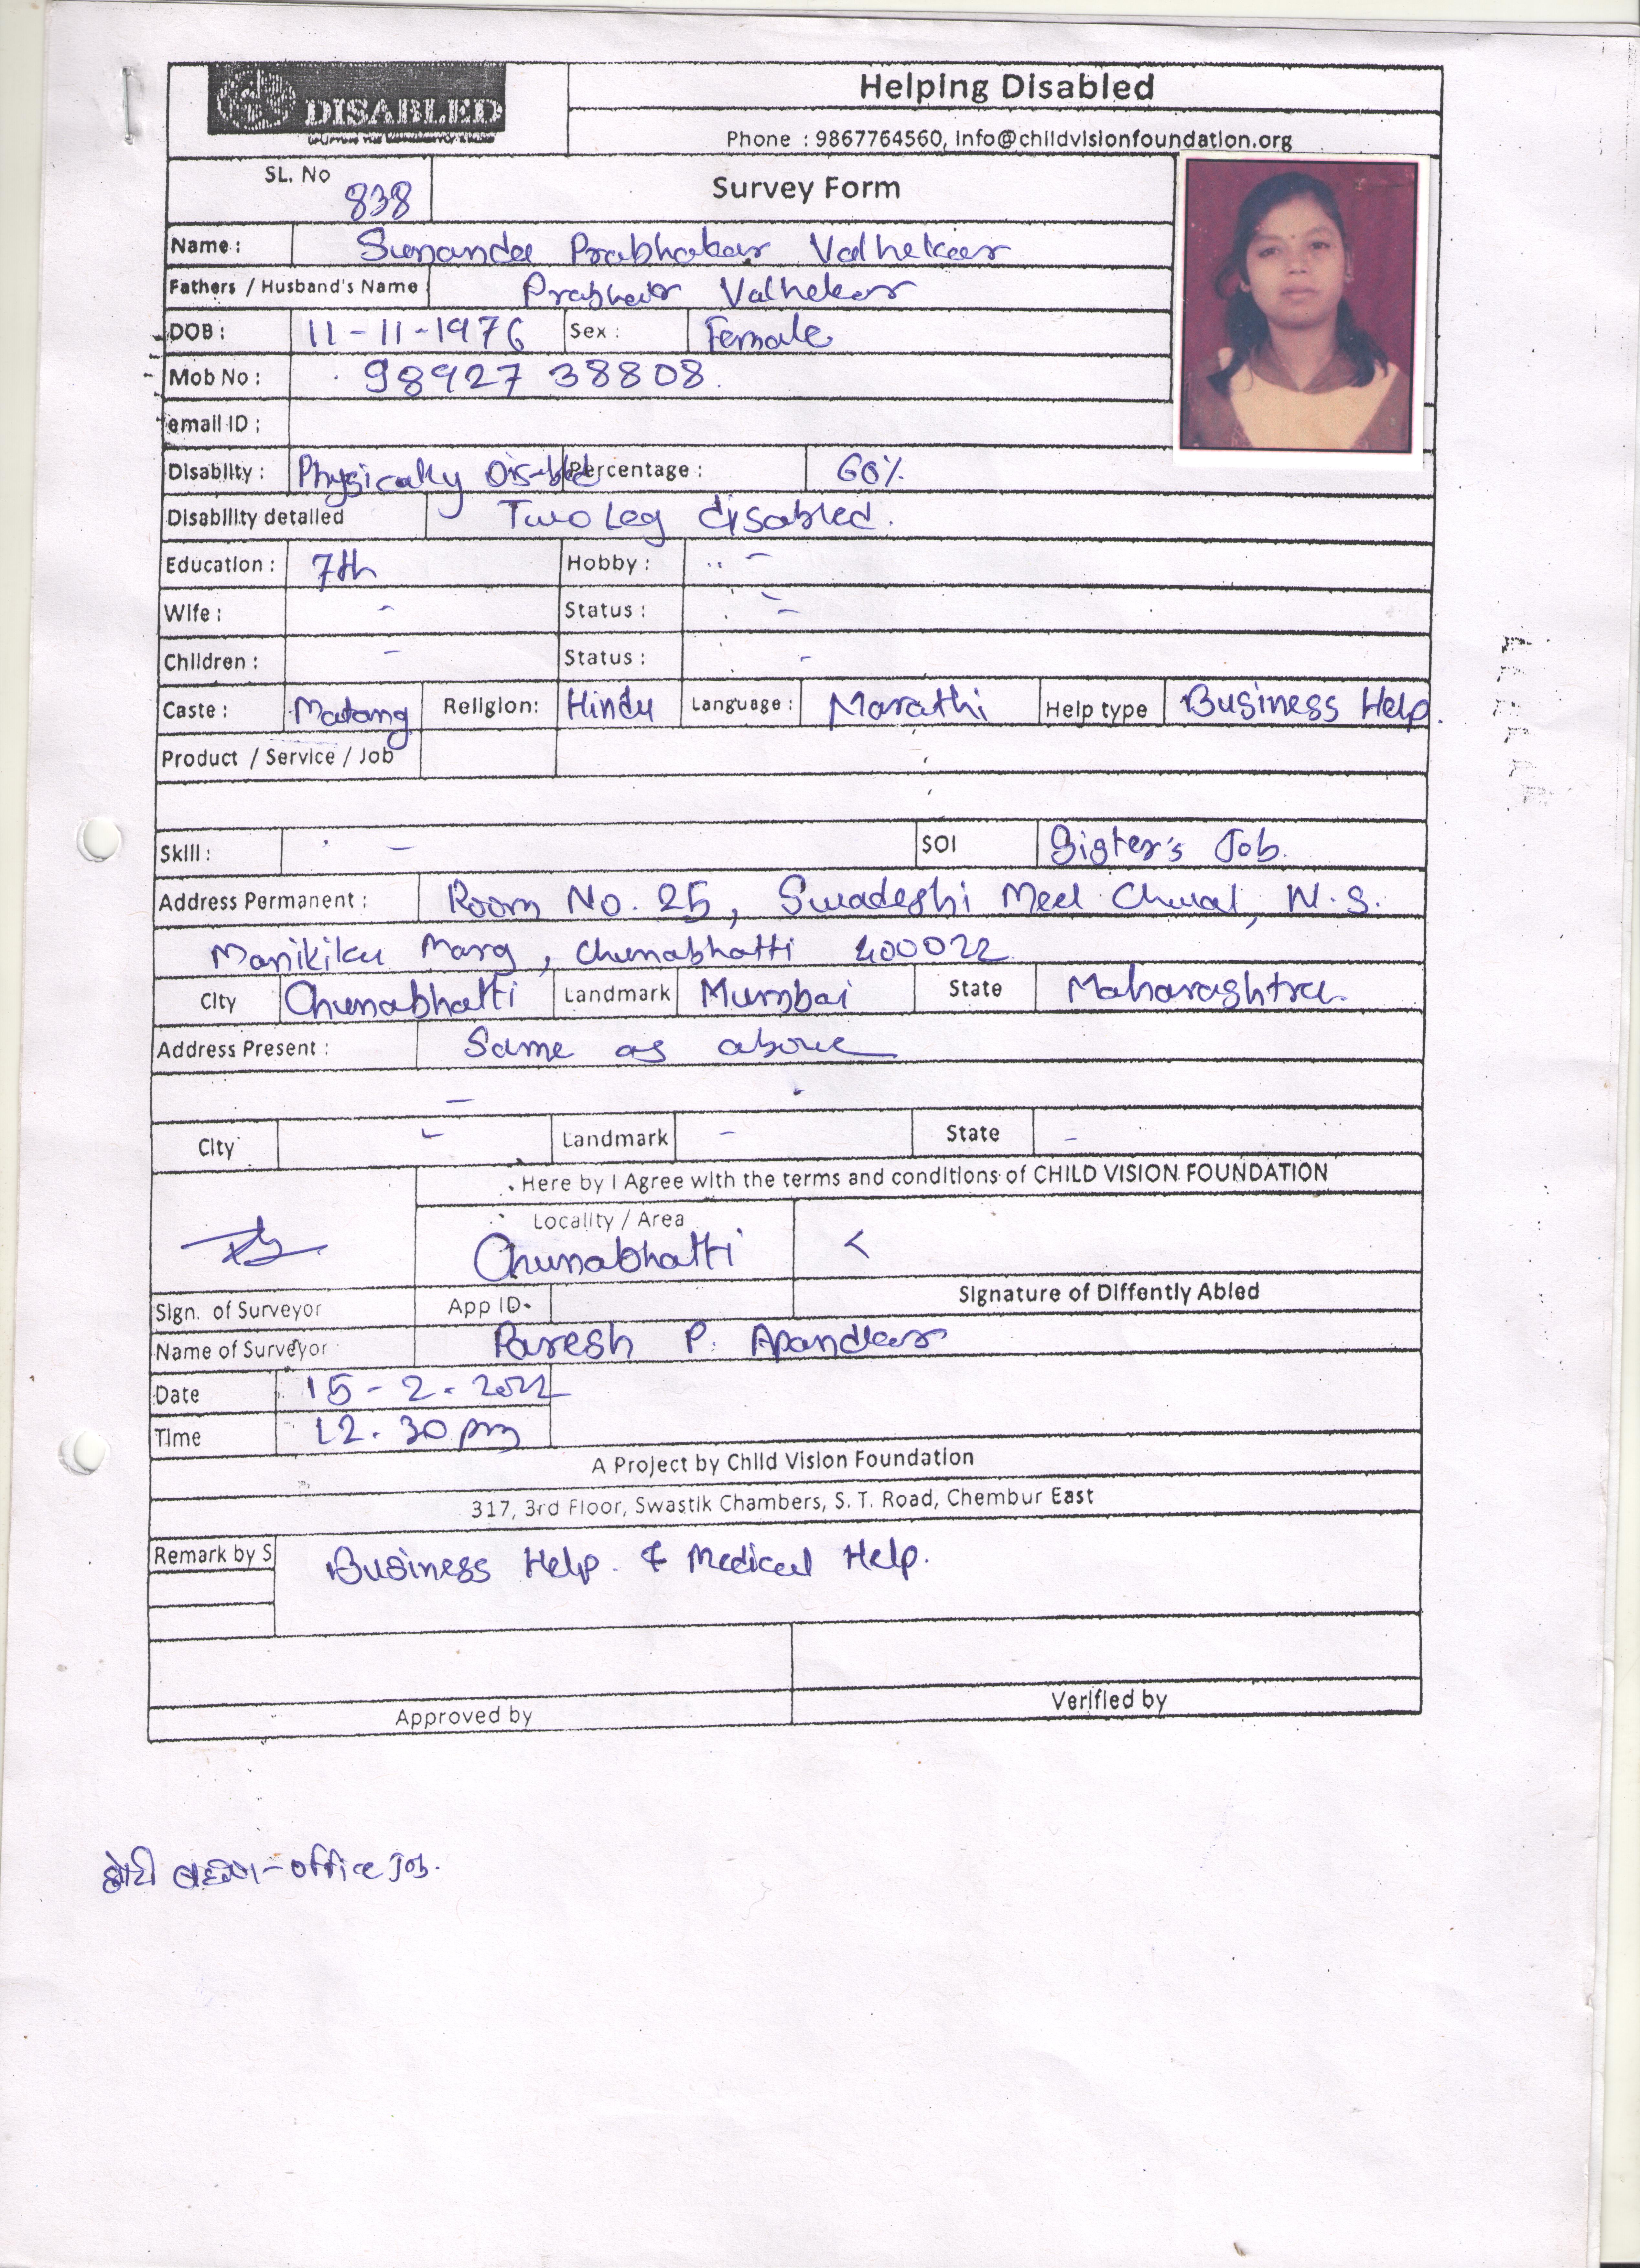 DISABLED
Helping Disabled
Phone : 9867764560, info@childvisionfoundation.org
SL. No 838
Survey Form
Name : Sunanda Prabhakar Valhekar
Fathers / Husband's Name Valhekar
DOB : 11-11-1976 Sex : Female
Mob No : 98927 38808
email ID :
Disablity : Physically Percentage : 60%
Disability detailed Two Leg disabled.
Education : 7th Hobby : -
Wife : - Status : -
Children : - Status : -
Caste : Matang Religion: Hindu Language : Marathi Help type Business Help.
Product / Service / Job
Skill : - SOI Sister's Job.
Address Permanent : Room No. 25, Swadeshi Meel Chwal, N.S.
Marg, Chunabhatti 400022
City Chunabhatti Landmark Mumbai State Maharashtra.
Address Present : Same as above
-
City - Landmark - State -
Here by I Agree with the terms and conditions of CHILD VISION FOUNDATION
Locality / Area
Chunabhatti
Signature of Diffently Abled
Sign. of Surveyor App ID-
Name of Surveyor Paresh P. Apandkar
Date 15-2-2022
Time 12.30 pm
A Project by Child Vision Foundation
317, 3rd Floor, Swastik Chambers, S. T. Road, Chembur East
Remark by S Business Help. & Medical Help.
Approved by Verified by
- office Job.